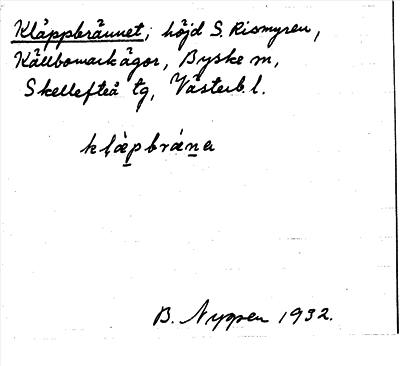 Kläppbrännet, höjd S. Rismyren,
Källbomark ägor, Byske sn,
Skellefteå tg, Västerb. l.
kḷæ̀p̲brán̲a
B. Nygren 1932.